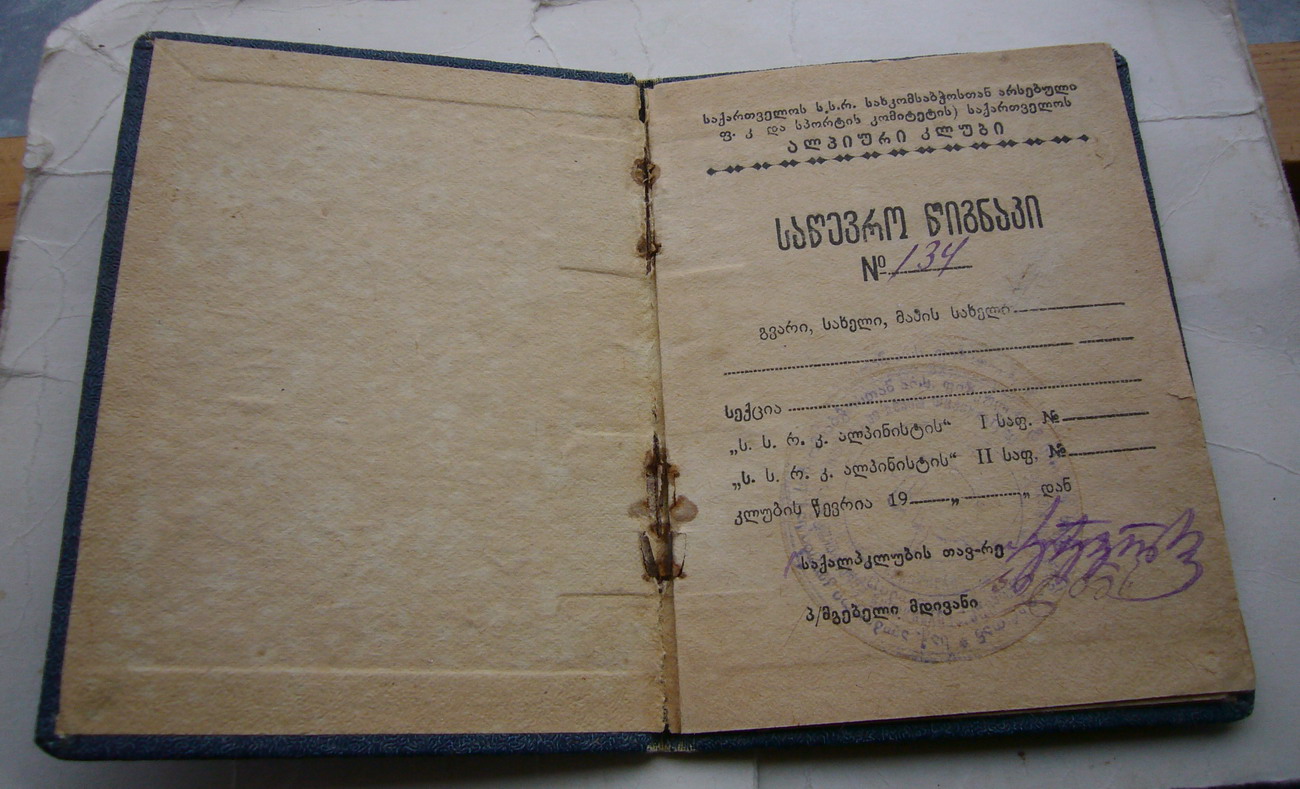 საქართველოს ს.ს.რ. სახკომსაბჭოსთან არსებული
ფ. კ და სპორტის კომიტეტის) საქართველოს
ალპიური კლუბი
საწევრო წიგნაკი
№ 134
გვარი, სახელი, მამის სახელი
სექცია
„ს. ს. რ. კ. ალპინისტის“ I საფ. №
„ს. ს. რ. კ. ალპინისტის“ II საფ. №
კლუბის წევრია 19 „ „ დან
საქალპკლუბის თავ-რე
პ/მგებელი მდივანი